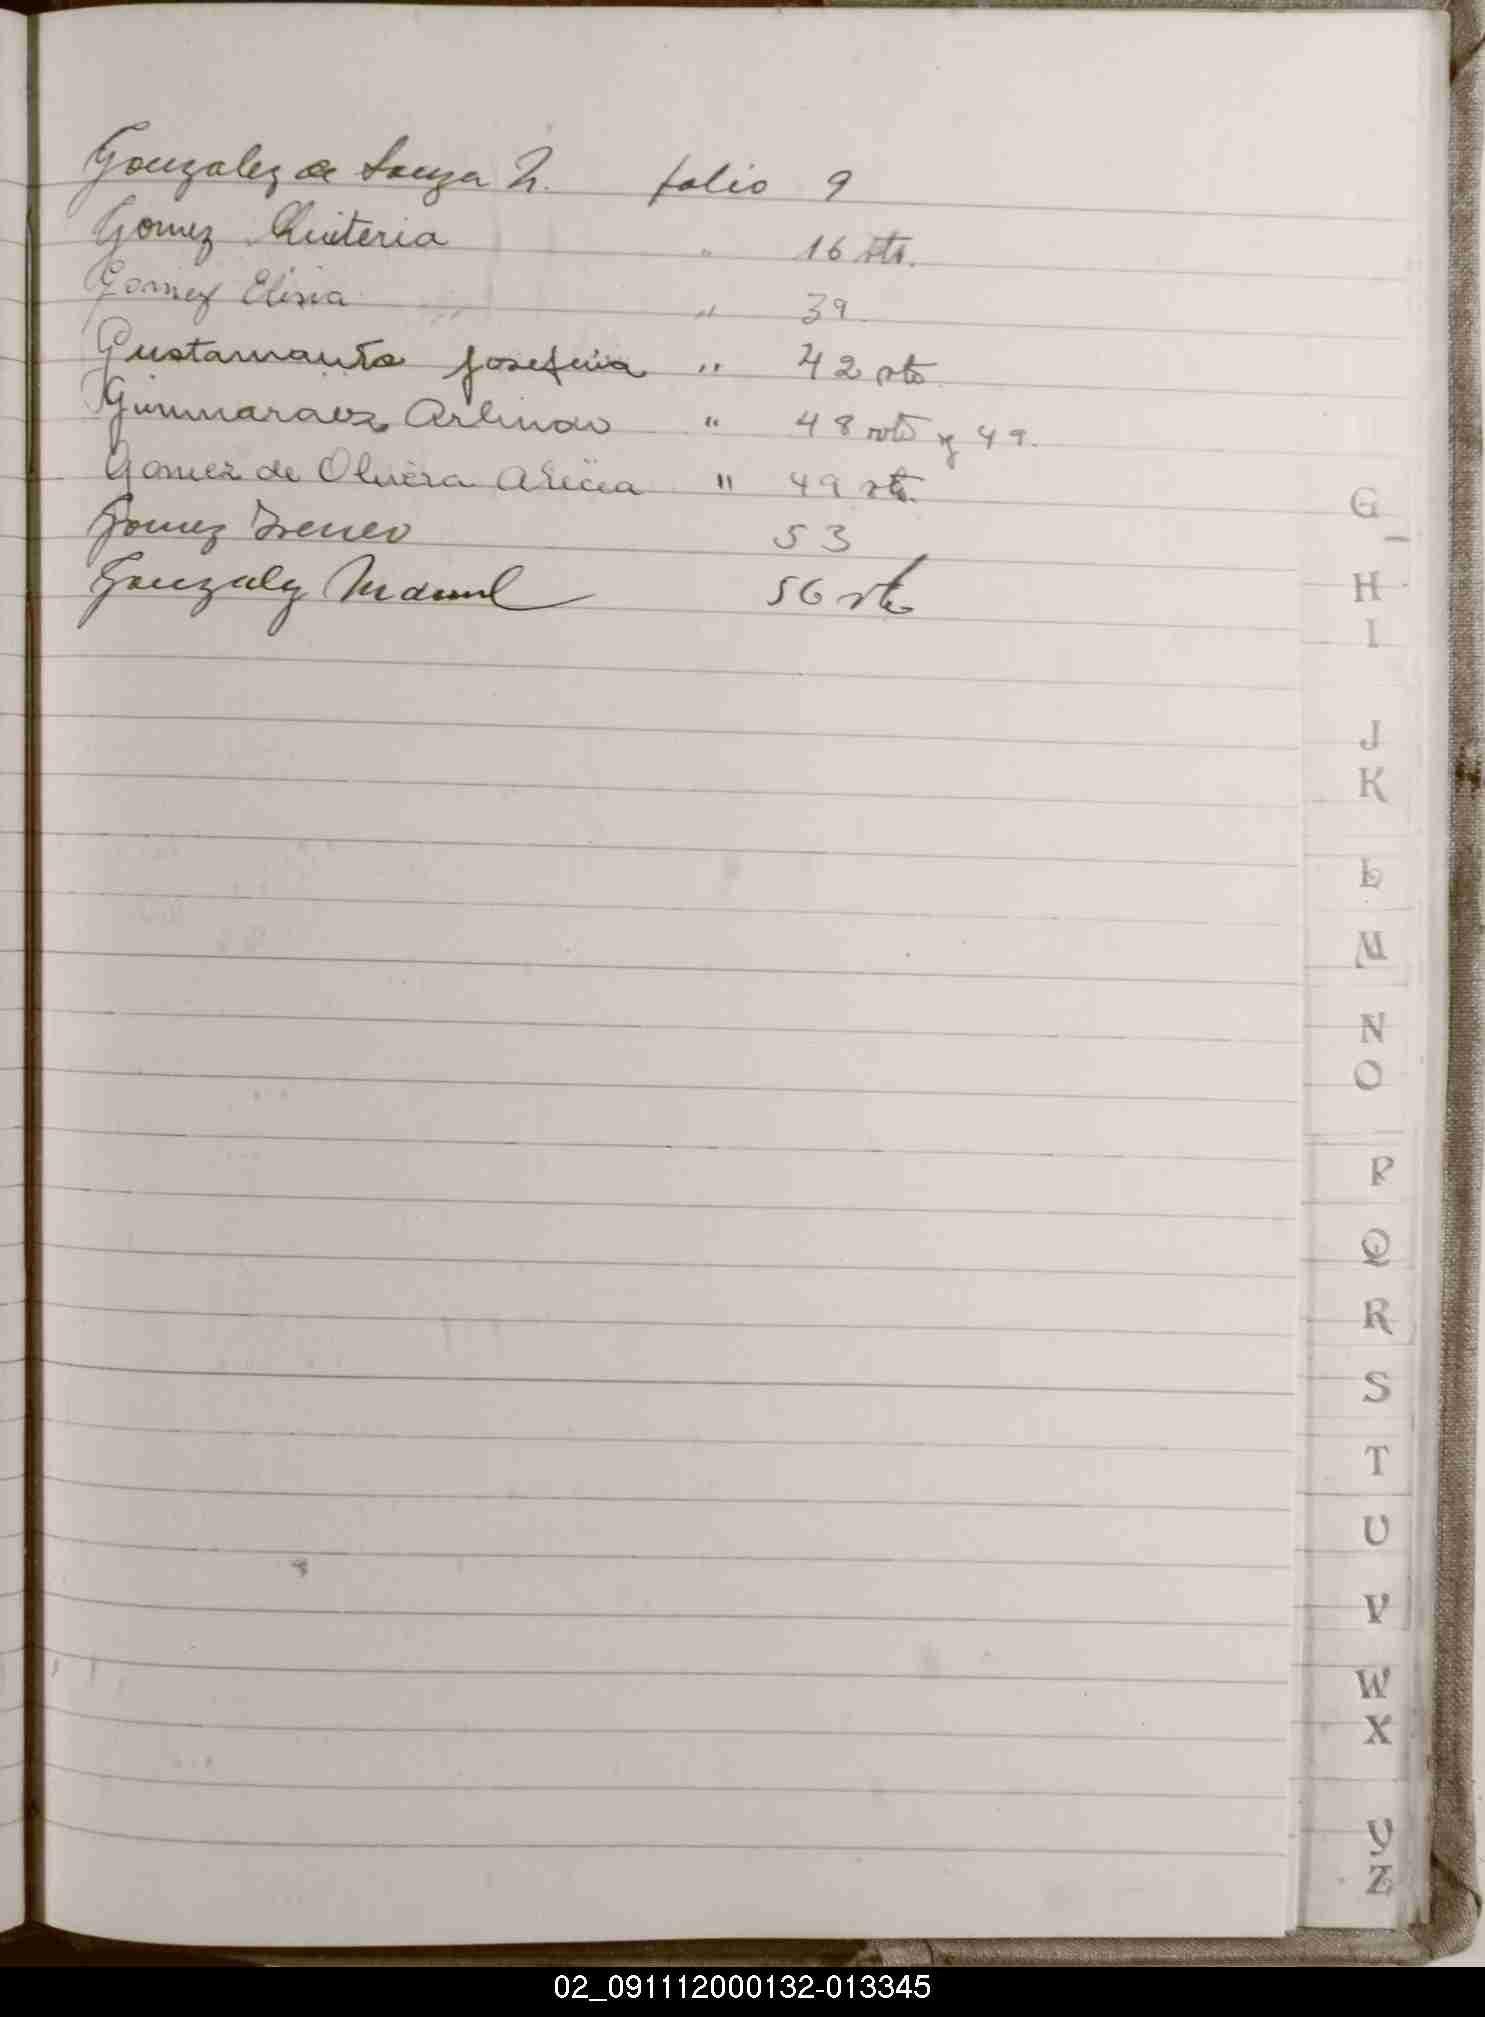 Gonzalez de Souza N. folio 9
Gomez Quiteria " 16 vto.
Gomez Elisia " 39
Gustamante Josefina " 42 vto
Guimaraez Arlindo " 48 vto y 49.
Gomez de Olivera Alicia " 49 vto.
Gomez Ireneo 53
Gonzalez Manuel 56 vto
G
H
I
J
K
L
M
N
O
P
Q
R
S
T
U
V
W
X
Y
Z
02_091112000132-013345